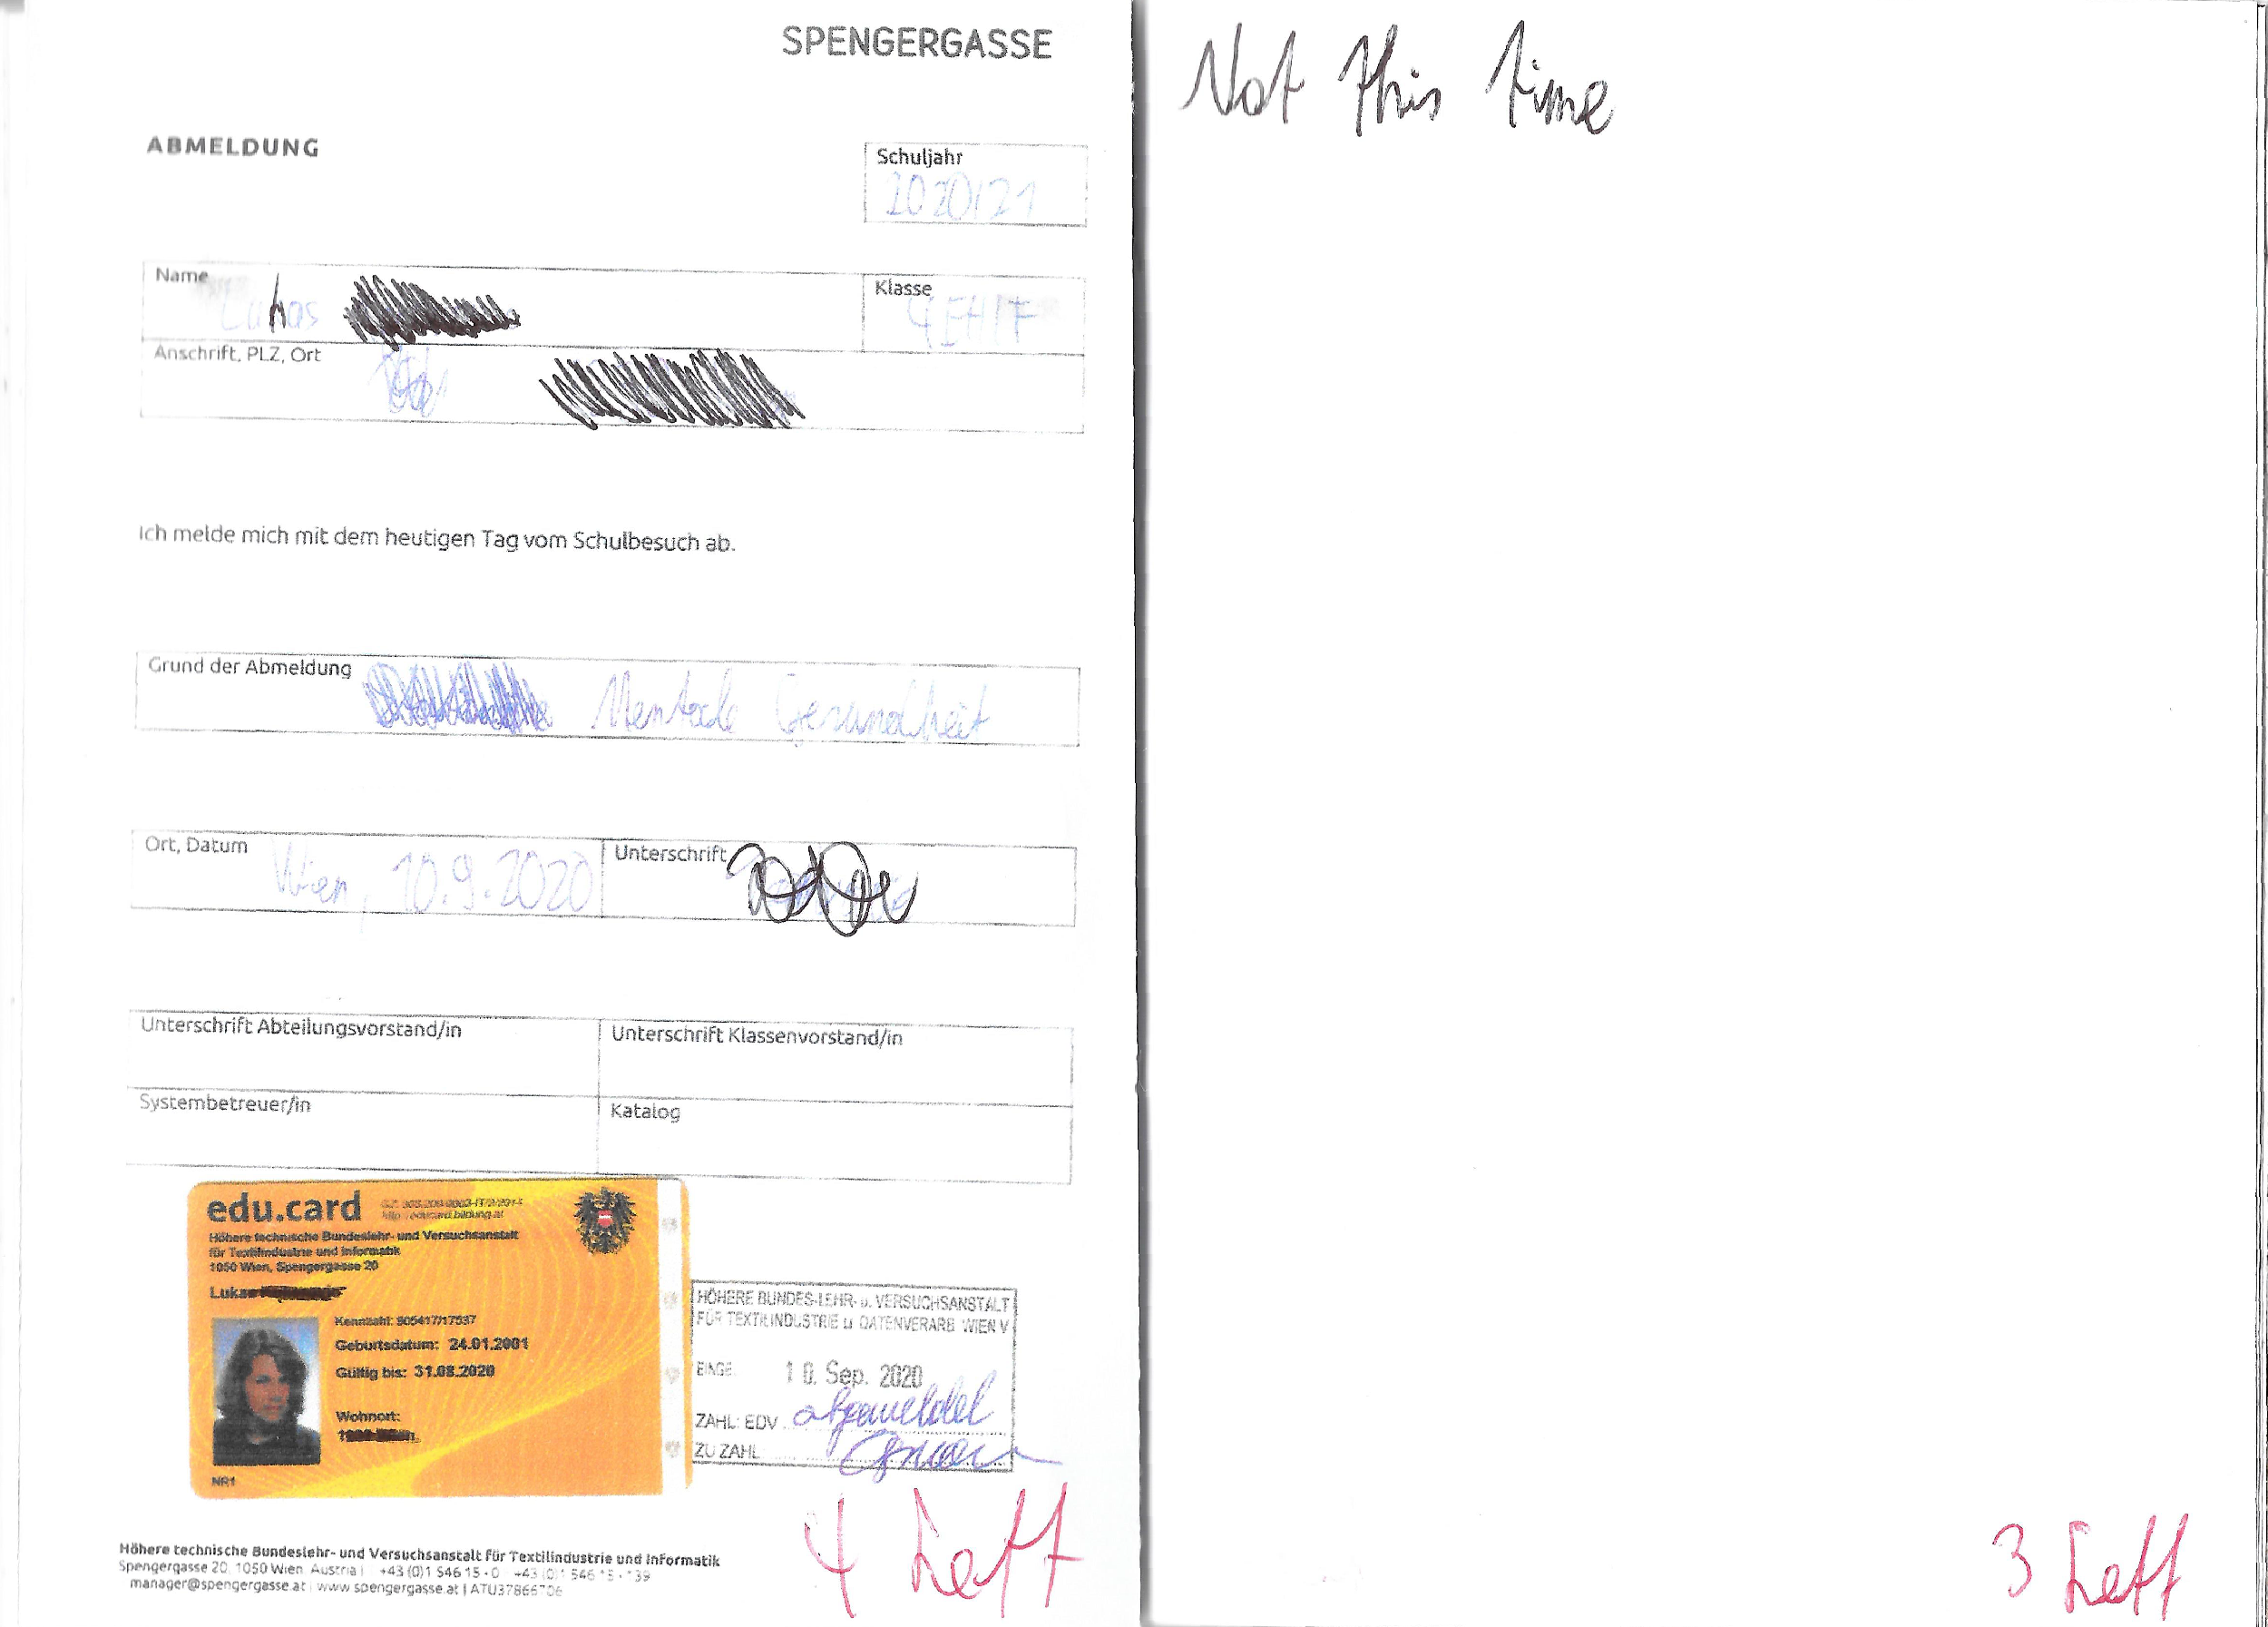 SPENGERGASSE
ABMELDUNG
Schuljahr
2020/21
Name
Lukas
Klasse
4EHIF
Anschrift, PLZ, Ort
Ich melde mich mit dem heutigen Tag vom Schulbesuch ab.
Grund der Abmeldung
Mentale Gesundheit
Ort, Datum
Wien, 10.9.2020
Unterschrift
Unterschrift Abteilungsvorstand/in
Unterschrift Klassenvorstand/in
Systembetreuer/in
Katalog
edu.card
Höhere technische Bundeslehr- und Versuchsanstalt
für Textilindustrie und Informatik
1050 Wien, Spengergasse 20
Lukas
Kennzahl: 905417/17537
Geburtsdatum: 24.01.2001
Gültig bis: 31.08.2020
Wohnort:
NR1
HÖHERE BUNDES-LEHR- u. VERSUCHSANSTALT
FÜR TEXTILINDUSTRIE u DATENVERARB WIEN V
EINGE. 10. Sep. 2020
ZAHL: EDV abgemeldet
ZU ZAHL
4 Left
Höhere technische Bundeslehr- und Versuchsanstalt für Textilindustrie und Informatik
Spengergasse 20, 1050 Wien, Austria | +43 (0)1 546 15 - 0 +43 (0)1 546 15 - 139
manager@spengergasse.at | www.spengergasse.at | ATU37866706
Not this time
3 Left